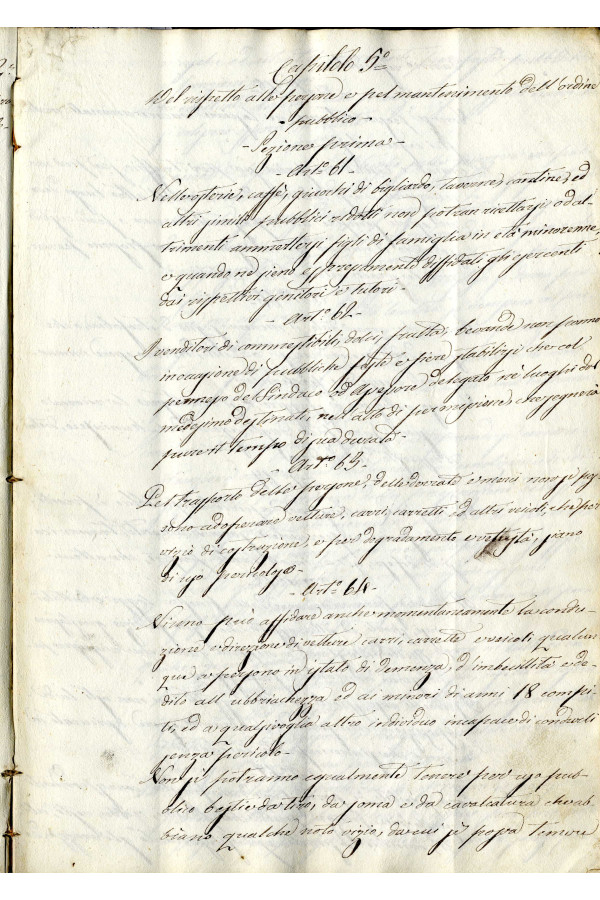 Capitolo 5°
Del rispetto alle persone e pel mantenimento dell'ordine
pubblico -
- Sezione prima -
- Art.° 61 -
Nelle osterie, caffè, giuochi di bigliardo, taverne, cantine, ed
altri simili pubblici ridotti non potran ricettarsi od al-
trimenti ammettersi figli di famiglia in età minorenne,
e quando ne sieno espressamente diffidati gli esercenti
dai rispettivi genitori e tutori -
- Art.° 62 -
I venditori di commestibili, dolci, frutta, bevande non ponno
in occasione di pubbliche feste e fiere stabilirsi che col
permesso del Sindaco od Assessore delegato ne' luoghi dal
medesimo destinati, ne l'atto di permissione assegnerà
pure il tempo di sua durata -
- Art.° 63 -
Pel trasporto delle persone, delle derrate e merci non si pos-
sono adoperare vetture, carri, carrette ed altri veicoli, che per
vizio di costruzione, e per degradamento e vetustà, siano
di uso pericoloso -
- Art.° 64 -
Niuno può affidare anche momentaneamente la condu-
zione e direzione di vetture carri, carrette e veicoli qualun-
que a persone in istato di demenza, d'imbecillità e de-
dite all'ubbriachezza ed ai minori di anni 18 compi-
ti, ed a qualsivoglia altro individuo incapace di condurli
senza pericolo -
Non si potranno egualmente tenere per uso pub-
blico bestie da tiro, da soma e da cavalcatura che ab-
biano qualche noto vizio, da cui si possa temere